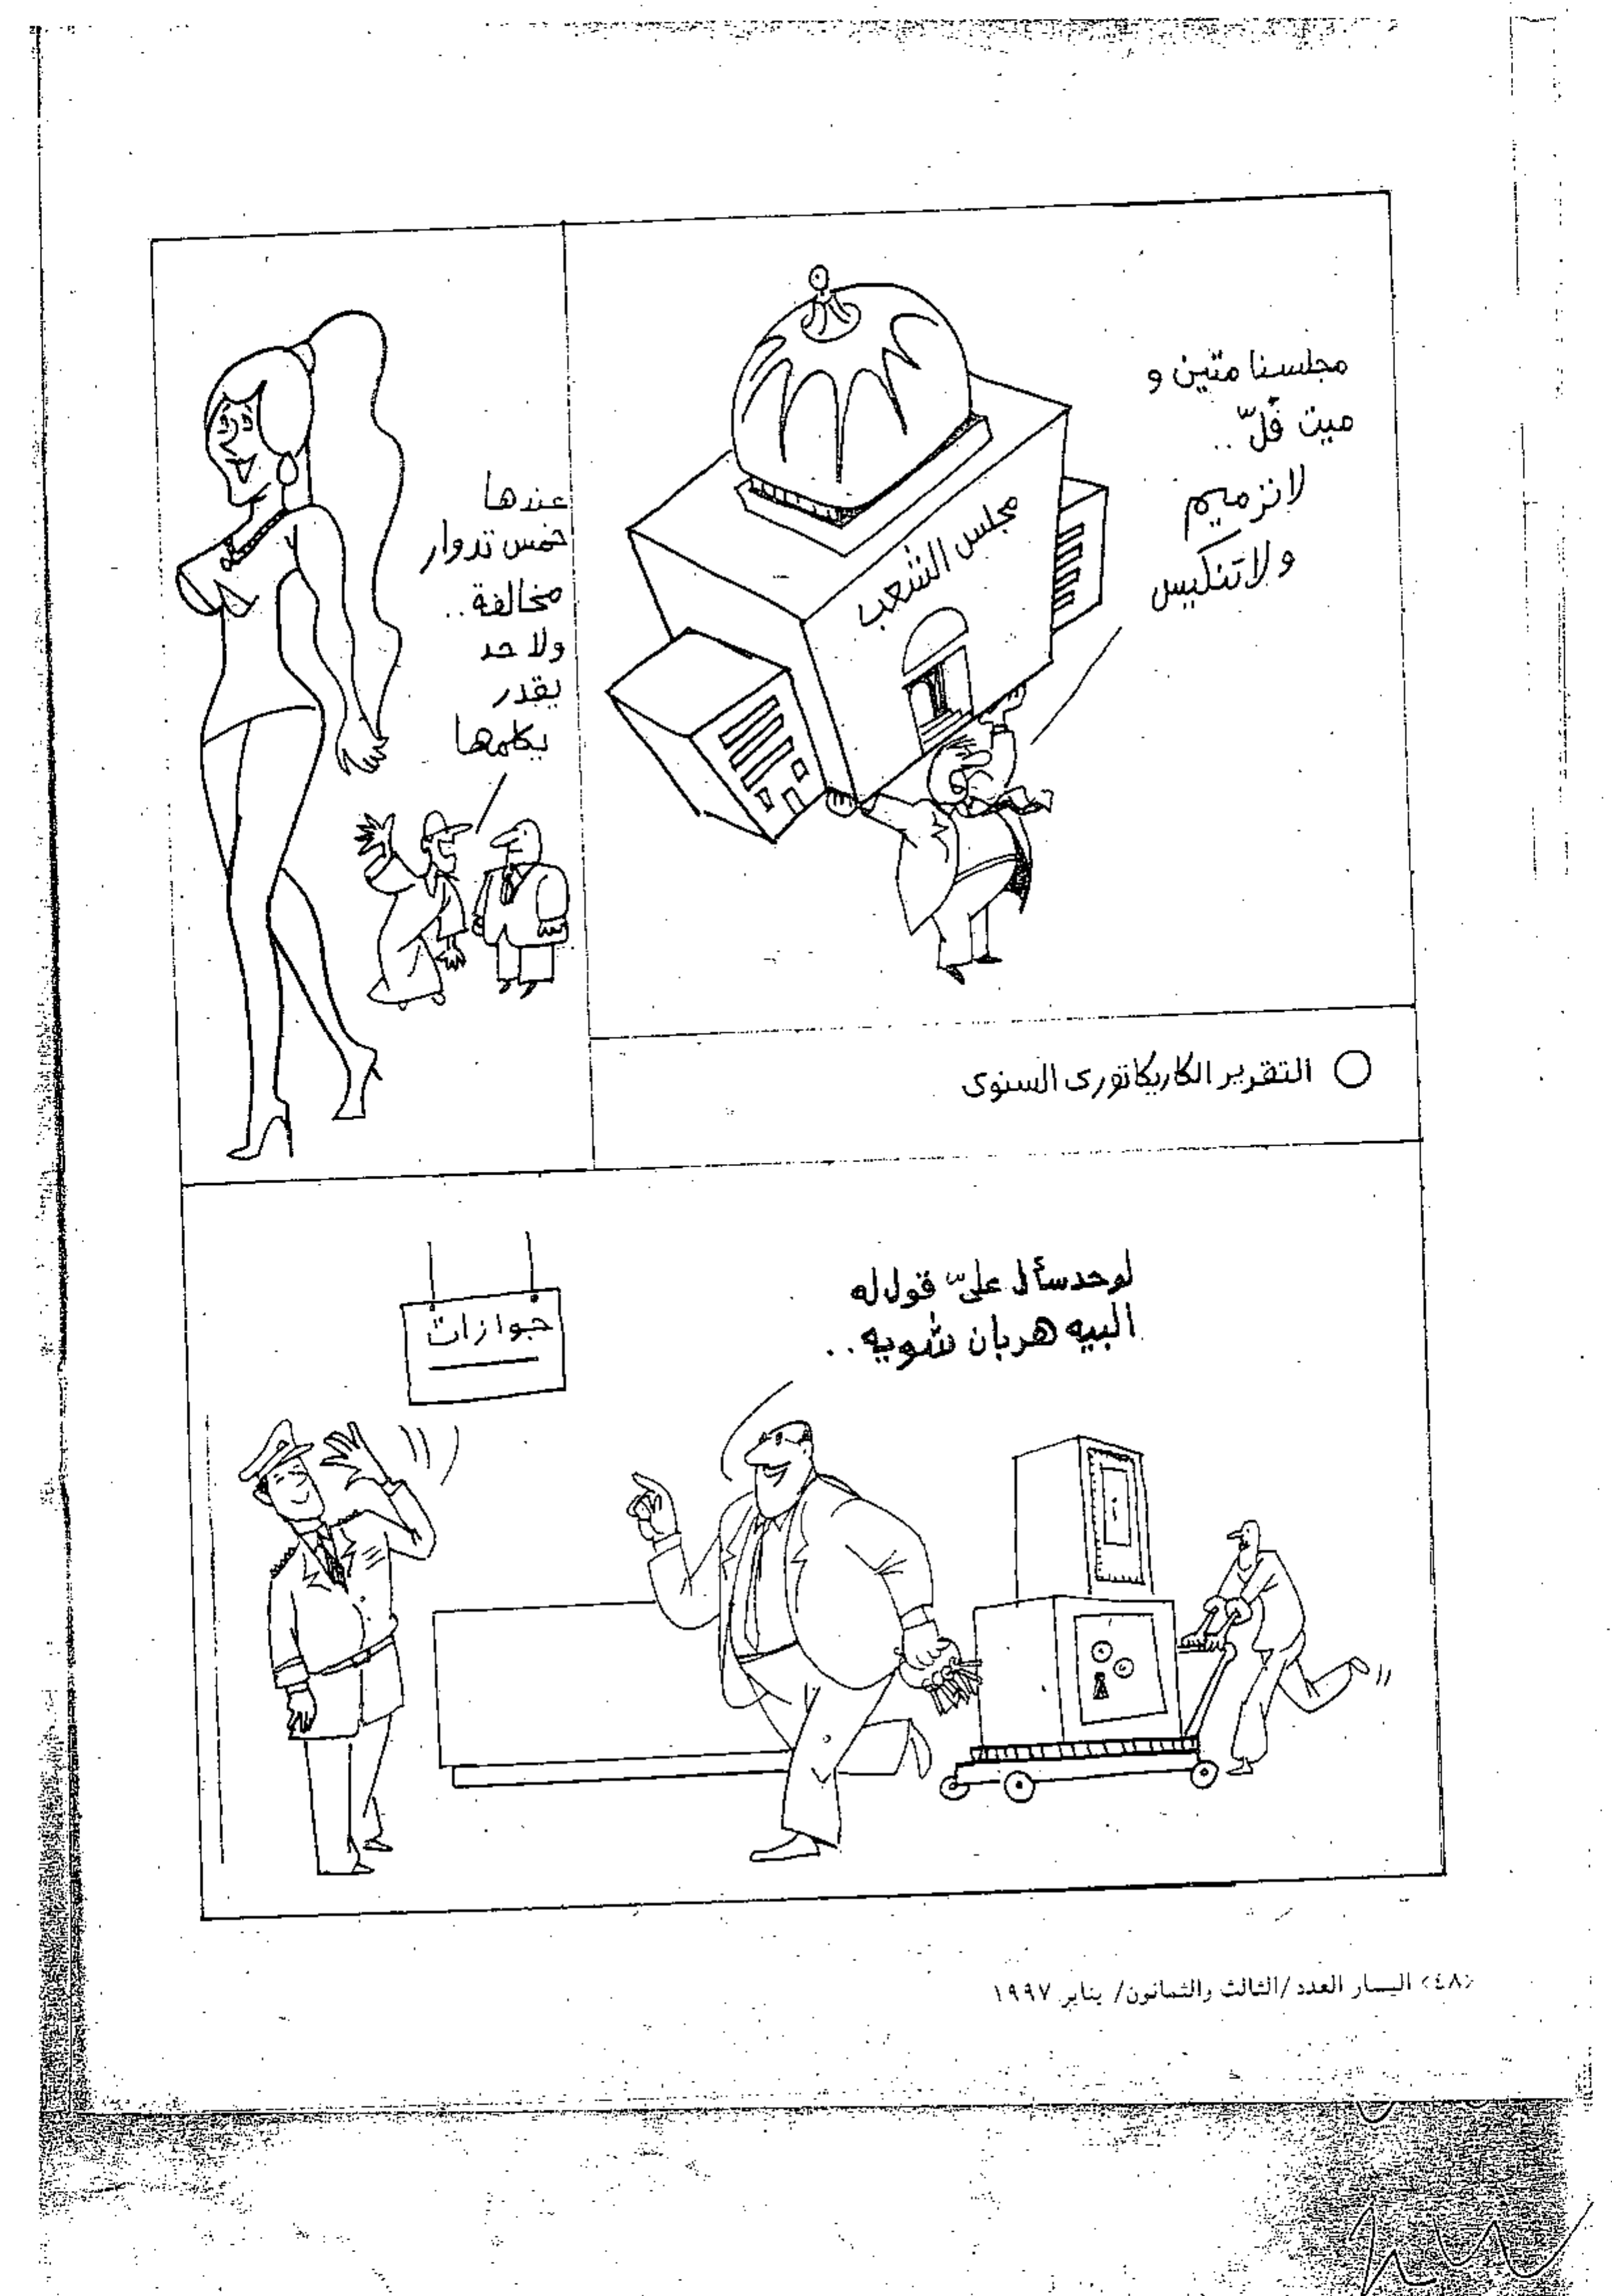 مجلسنا متين و
ميت فُلّ..
لا ترميم
ولا تنكيس
مجلس الشعب
عندها
خمس تدوار
مخالفة..
ولا حد
يقدر
يكلمها
التقرير الكاريكاتورى السنوى
لو حد سأل علىّ قول له
البيه هربان شويه..
جوازات
<٤٨> اليسار العدد/الثالث والثمانون/ يناير ١٩٩٧